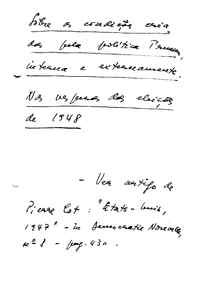 Sobre as condições cria
das pela política Truman,
interna e externamente.
Nas vesperas das eleições
de 1948
- Ver artigo de
Pierre Cot: "Etats-Unis,
1947" - in Democratie Nouvelle,
nº 8 - pag. 430.